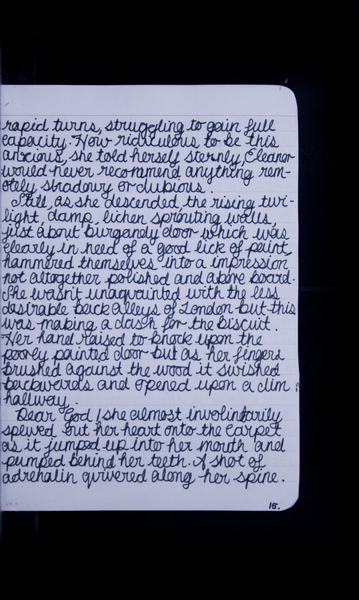 rapid turns, struggling to gain full
capacity. How ridiculous to be this
anxious, she told herself sternly, Eleanor
would never recommend anything rem-
otely shadowy or dubious.
Still, as she descended, the rising twi-
light, damp, lichen sprouting walls,
just about burgandy door which was
clearly in need of a good lick of paint,
hammered themselves into a impression
not altogether polished and above board.
She wasn't unaquainted with the less
desirable back alleys of London but this
was making a dash for the biscuit.
Her hand raised to knock upon the
poorly painted door but as her fingers
brushed against the wood it swished
backwards and opened upon a dim
hallway.
Dear God! she almost involintarily
spewed out her heart onto the carpet
as it jumped up into her mouth and
pumped behind her teeth. A shot of
adrenalin quivered along her spine.
15.